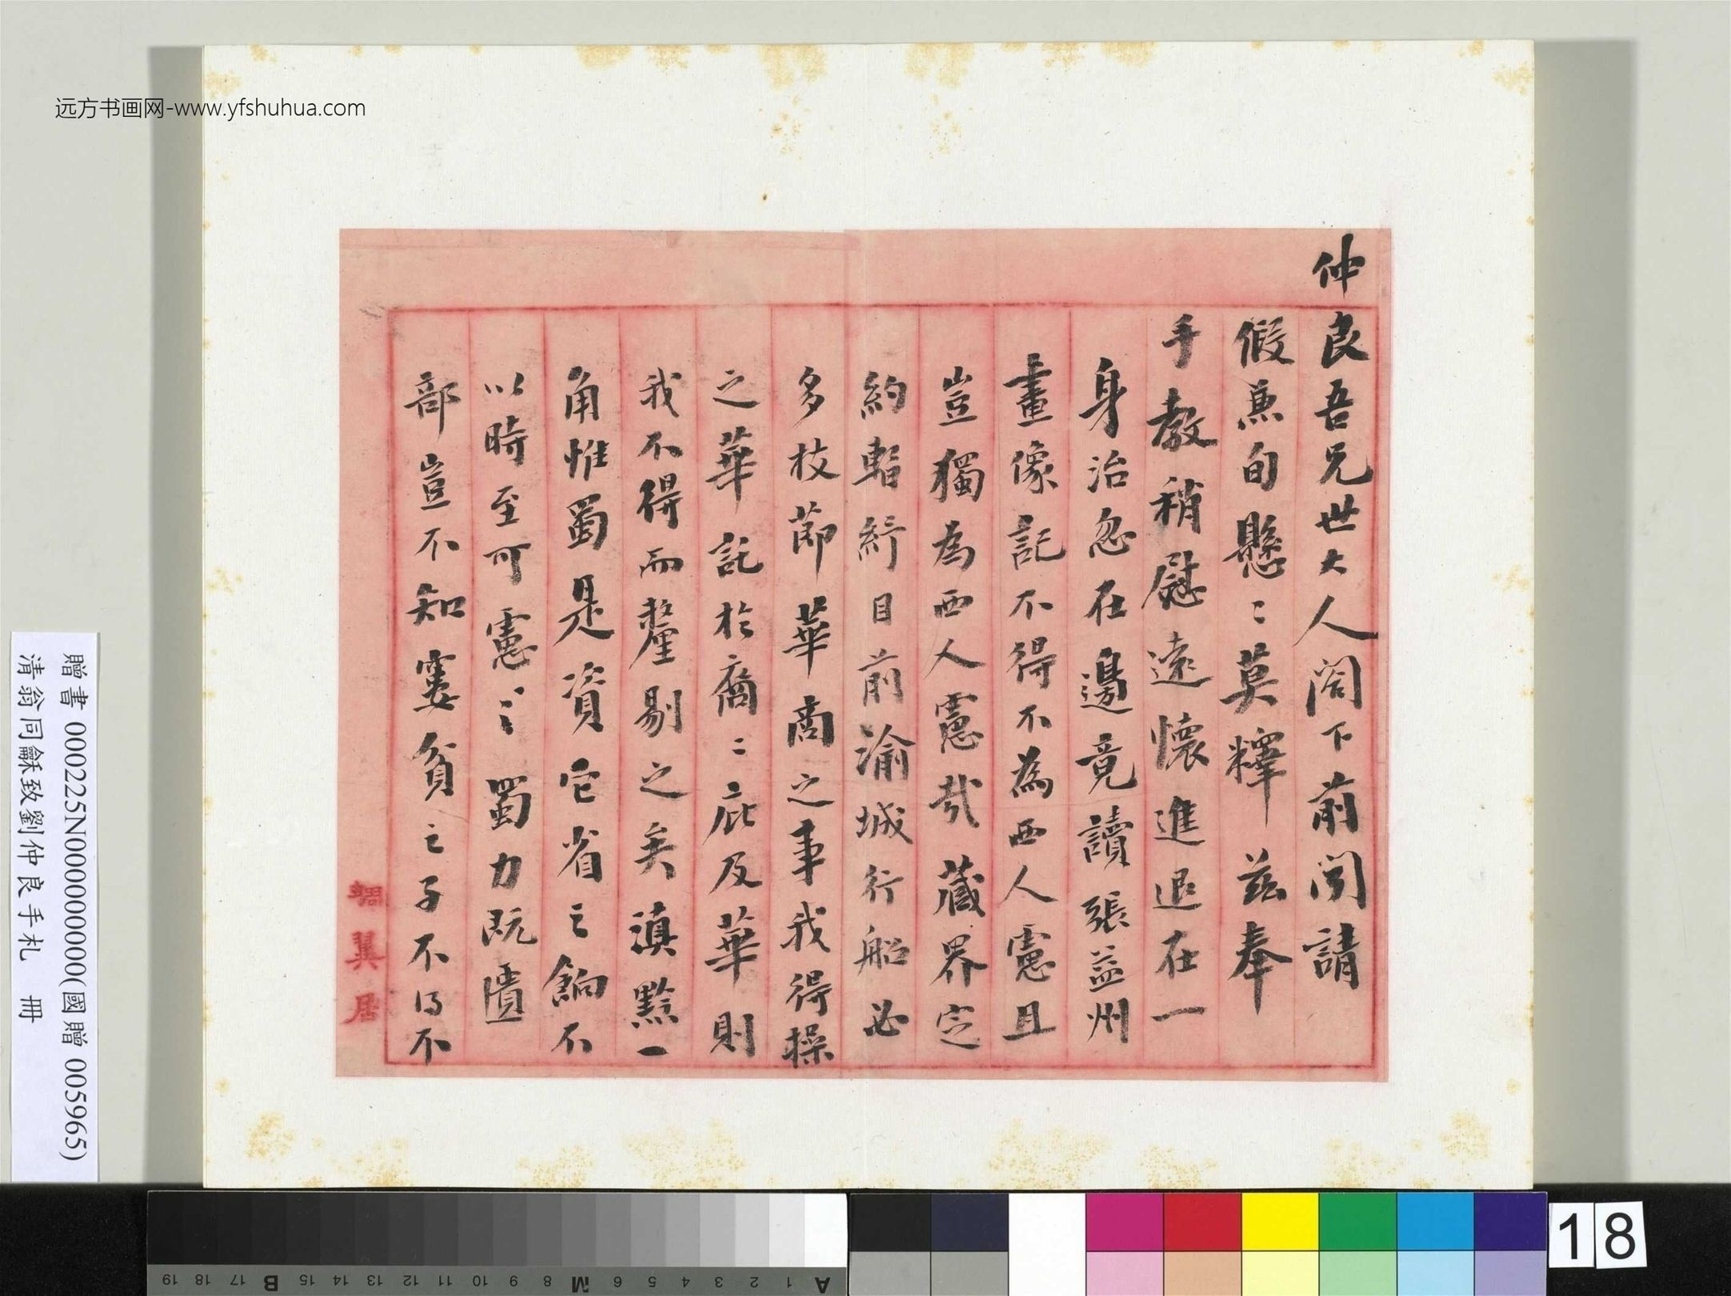 远方书画网-www.yfshuhua.com
仲良吾兄世大人閤下前聞請
假兼旬懸〻莫釋茲奉
手教稍慰遠懷進退在一
身治忽在邊竟讀張益州
畫像記不得不為西人慮且
豈獨為西人慮哉藏界定
約暫紓目前渝城行船必
多枝節華商之事我得操
之華託於商〻庇及華則
我不得而釐剔之矣滇黔一
角惟蜀是資它省之餉不
以時至可慮〻蜀力既匱
部豈不知窶貧之子不得不
贈書 000225N000000000(國贈 005965)
清翁同龢致劉仲良手札 冊
18
A 1 2 3 4 5 6 M 8 9 10 11 12 13 14 15 B 17 18 19